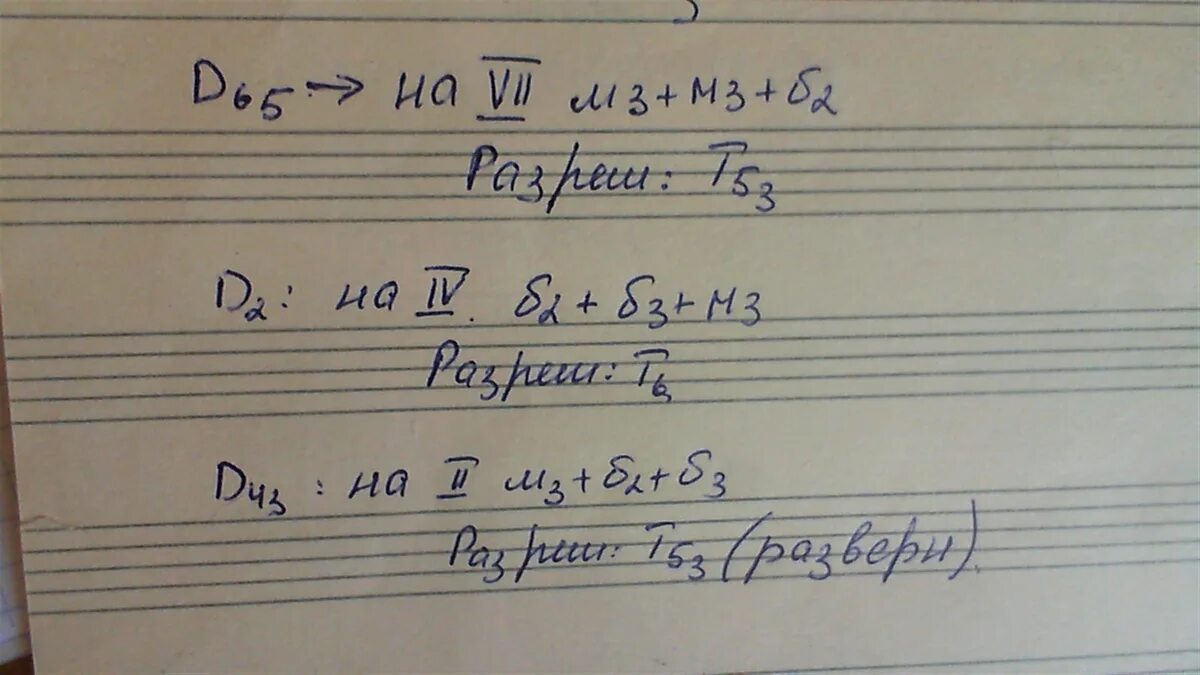 D65 → на VII м3+м3+б2
Разреш: Т53
D2: на IV. б2+б3+м3
Разреш: Т6
D43: на II м3+б2+б3
Разреш: Т53 (разверн).